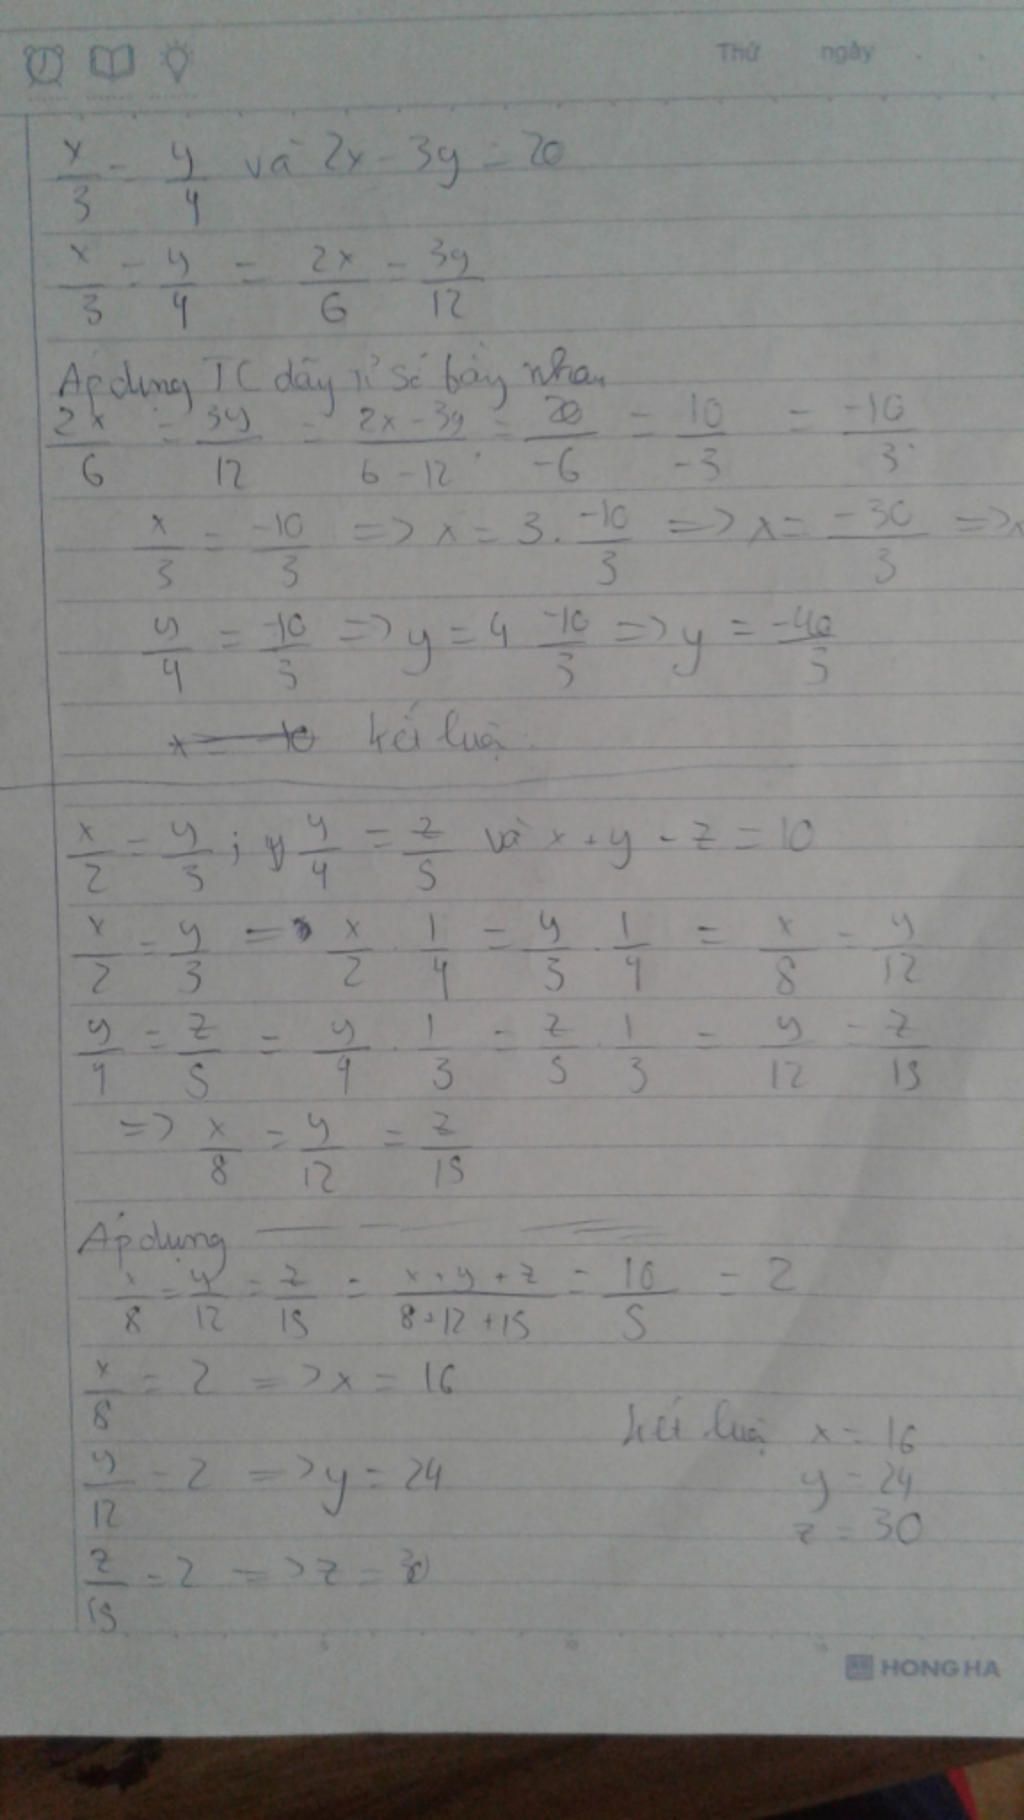 Thứ ngày
x/3 = y/4 và 2x - 3y = 20
x/3 = y/4 = 2x/6 = 3y/12
Áp dụng TC dãy tỉ số bằng nhau
2x/6 = 3y/12 = 2x-3y/6-12 = 20/-6 = 10/-3 = -10/3
x/3 = -10/3 => x = 3. -10/3 => x = -30/3 => x
y/4 = -10/3 => y = 4 -10/3 => y = -40/3
kết luậ
x/2 = y/3 ; y/4 = z/5 và x + y - z = 10
x/2 = y/3 => x/2 . 1/4 = y/3 . 1/4 = x/8 = y/12
y/4 = z/5 = y/4 . 1/3 = z/5 . 1/3 = y/12 = z/15
=> x/8 = y/12 = z/15
Áp dụng
x/8 = y/12 = z/15 = x+y+z/8+12+15 = 10/5 = 2
x/8 = 2 => x = 16
kết luậ x = 16
y/12 = 2 => y = 24
y = 24
z = 30
z/15 = 2 => z = 30
HONG HA